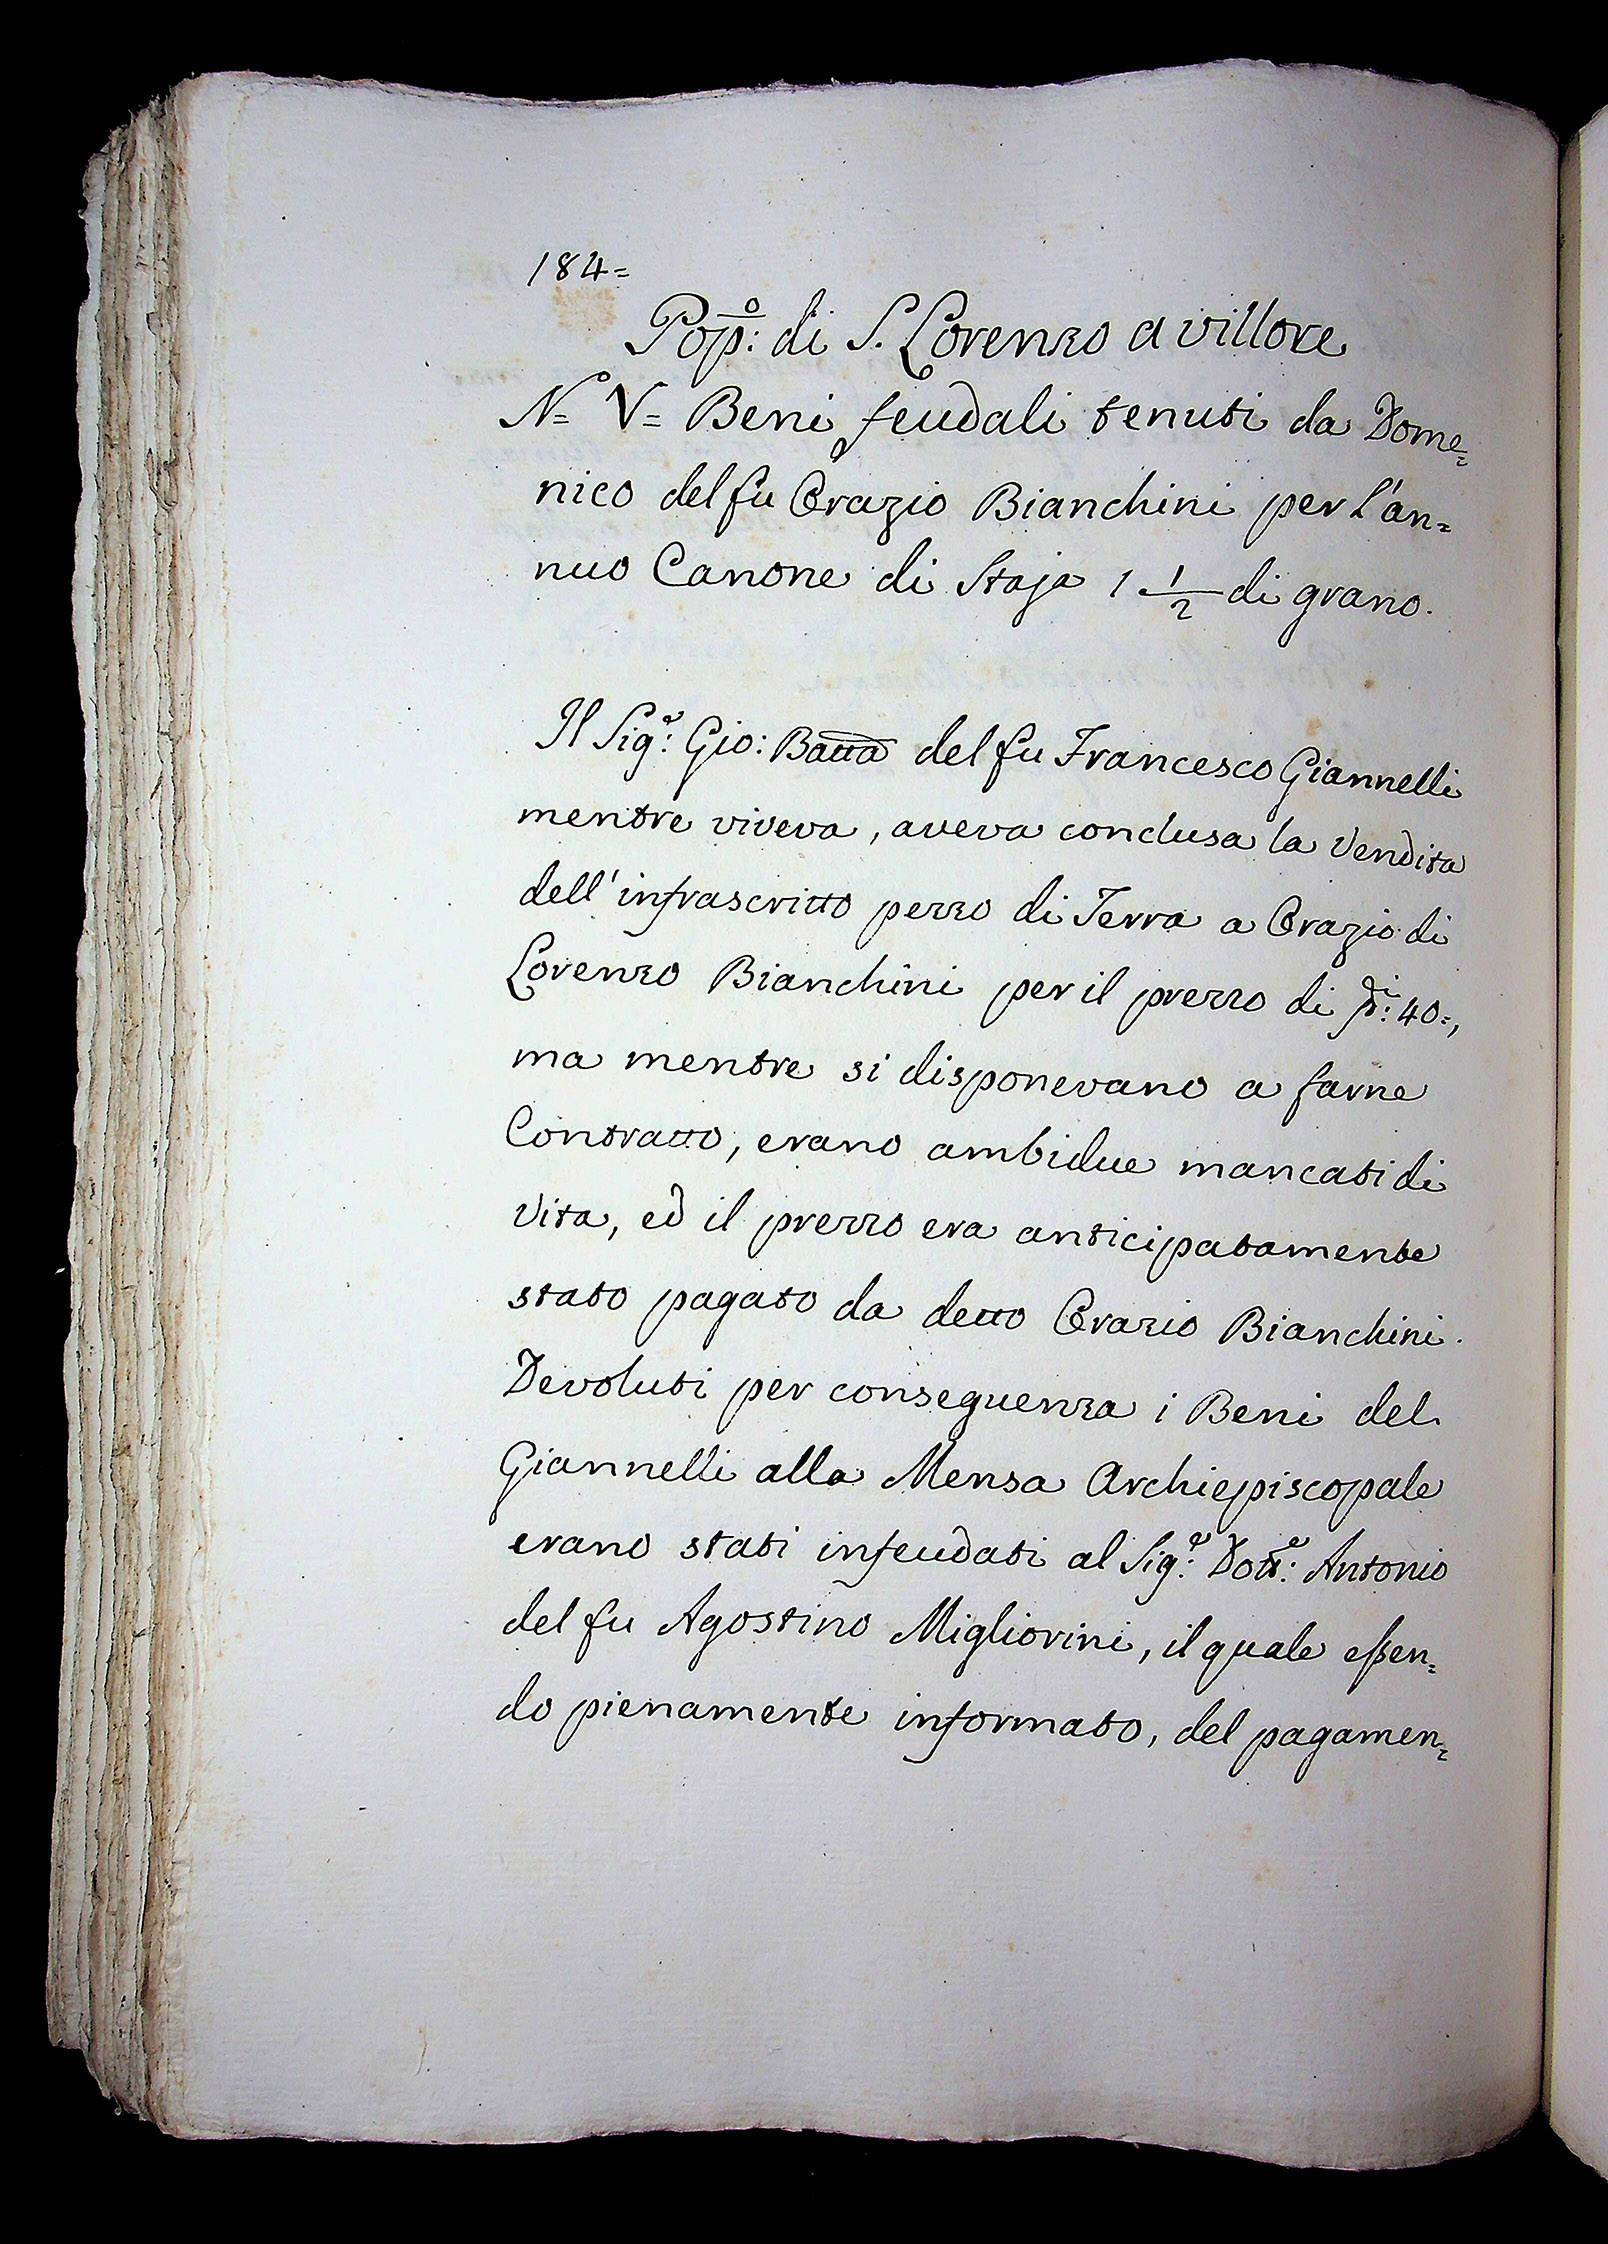 184=
Pop.º: di S. Lorenzo a villore
Nº= V= Beni feudali tenuti da Dome=
nico del fu Orazio Bianchini per l'an=
nuo Canone di Staja 1 1/2 di grano.
Il Sig.e: Gio: Batta del fu Francesco Giannelli
mentre viveva, aveva conclusa la Vendita
dell'infrascritto pezzo di Terra a Orazio di
Lorenzo Bianchini per il prezzo di 40=,
ma mentre si disponevano a farne
Contratto, erano ambidue mancati di
Vita, ed il prezzo era anticipatamente
stato pagato da detto Orazio Bianchini.
Devoluti per conseguenza i Beni del
Giannelli alla Mensa Archiepiscopale
erano stati infeudati al Sig.e: Dott.e: Antonio
del fu Agostino Migliorini, il quale eßen=
do pienamente informato, del pagamen=